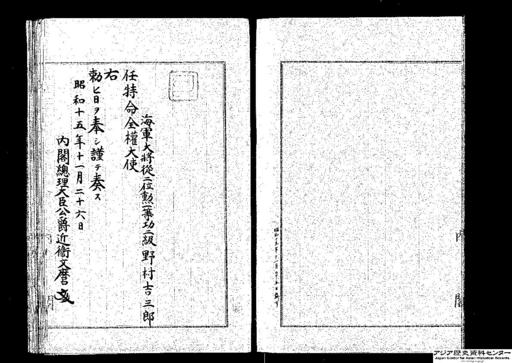 海軍大將從二位勲一等功二級野村吉三郎
任特命全權大使
右
勅旨ヲ奉シ謹テ奏ス
昭和十五年十一月二十六日
內閣總理大臣公爵近衞文麿
內閣
アジア歴史資料センター
Japan Center for Asian Historical Records